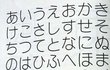 あいうえおかき
けこさしすせそ
ちつてとなにぬ
のはひふへほま